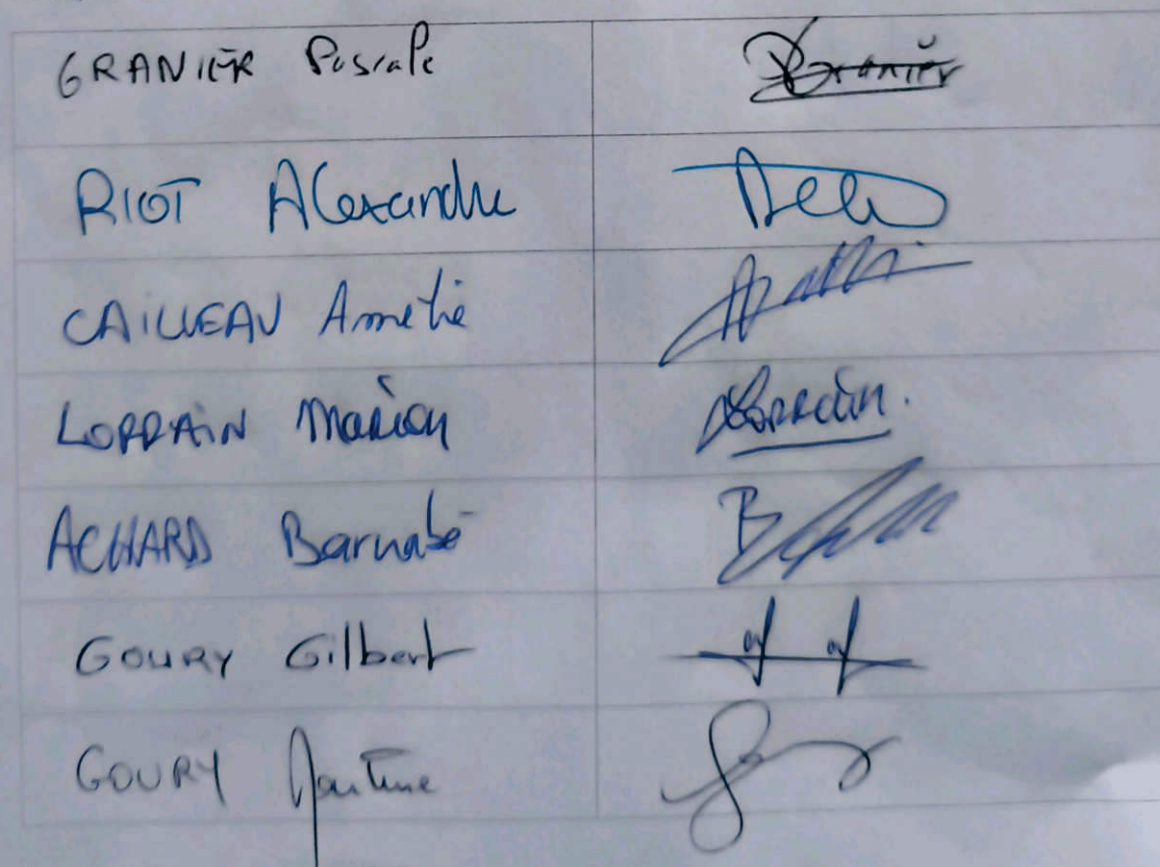 GRANIER Pascale Granier
RIOT Alexandre
CAILLEAU Amélie
LORRAIN Marion Lorrain.
ACHARD Barnabé
GOURY Gilbert
GOURY Martine